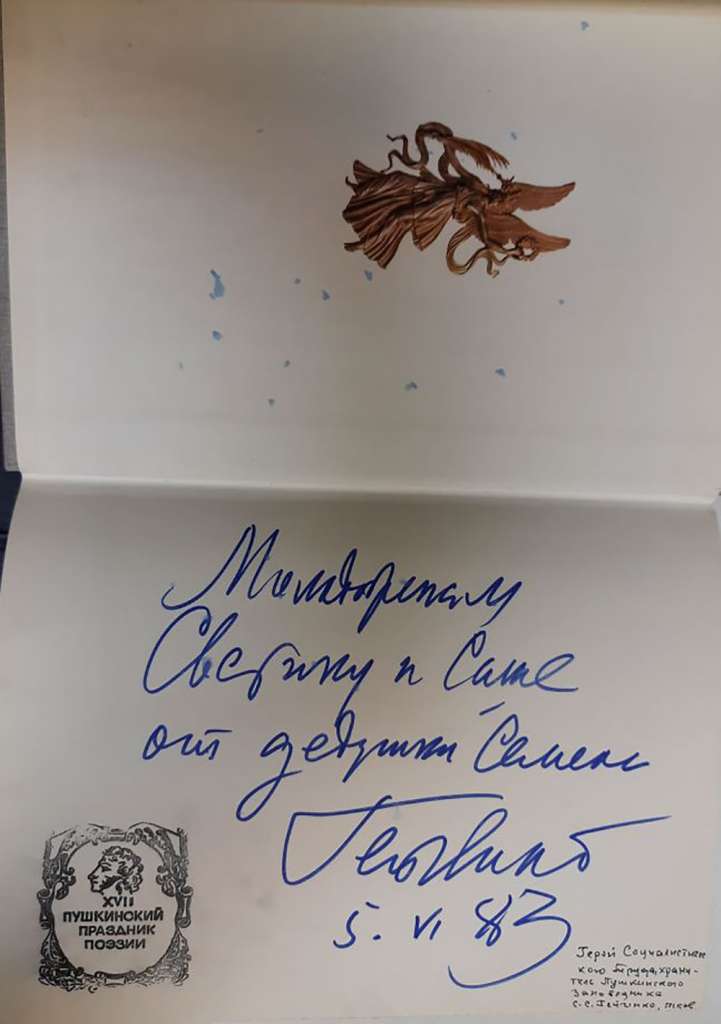 и Саше
от дедушки Семена
Гейченко
5. VI 83
XVII
ПУШКИНСКИЙ
ПРАЗДНИК
ПОЭЗИИ
Герой Социалистичес
кого Труда, храни-
тель Пушкинского
Заповедника
С.С. Гейченко,